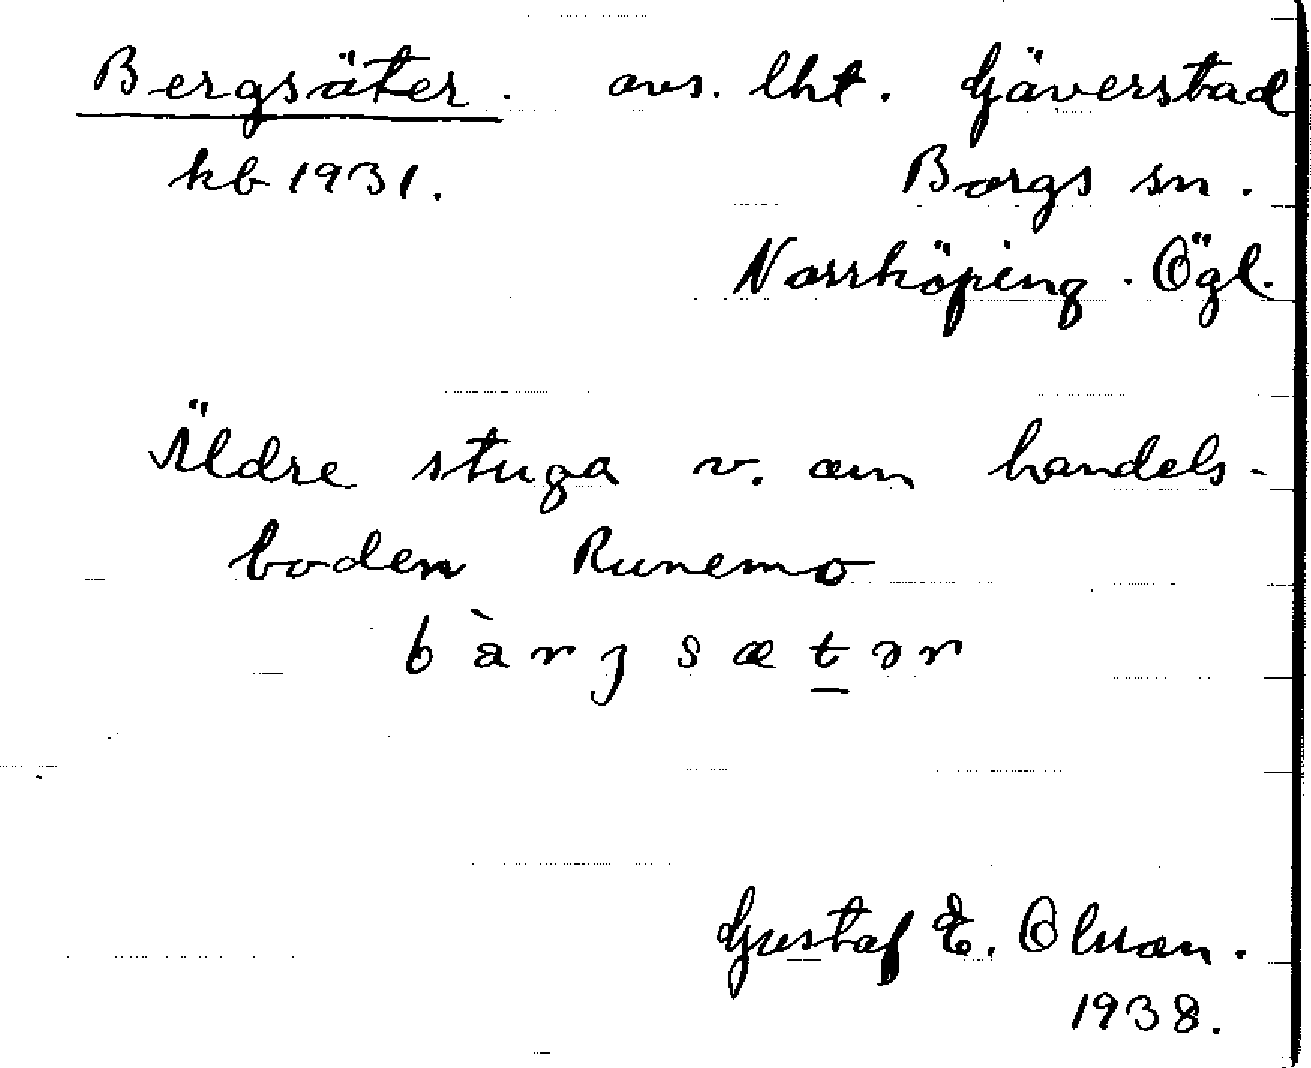 Bergsäter. avs. lht. Gäverstad
kb 1931. Borgs sn.
Norrköping. Ögl.
Äldre stuga v. om handels-
boden Runemo
bàrʒsætər
Gustaf E. Olsson.
1938.